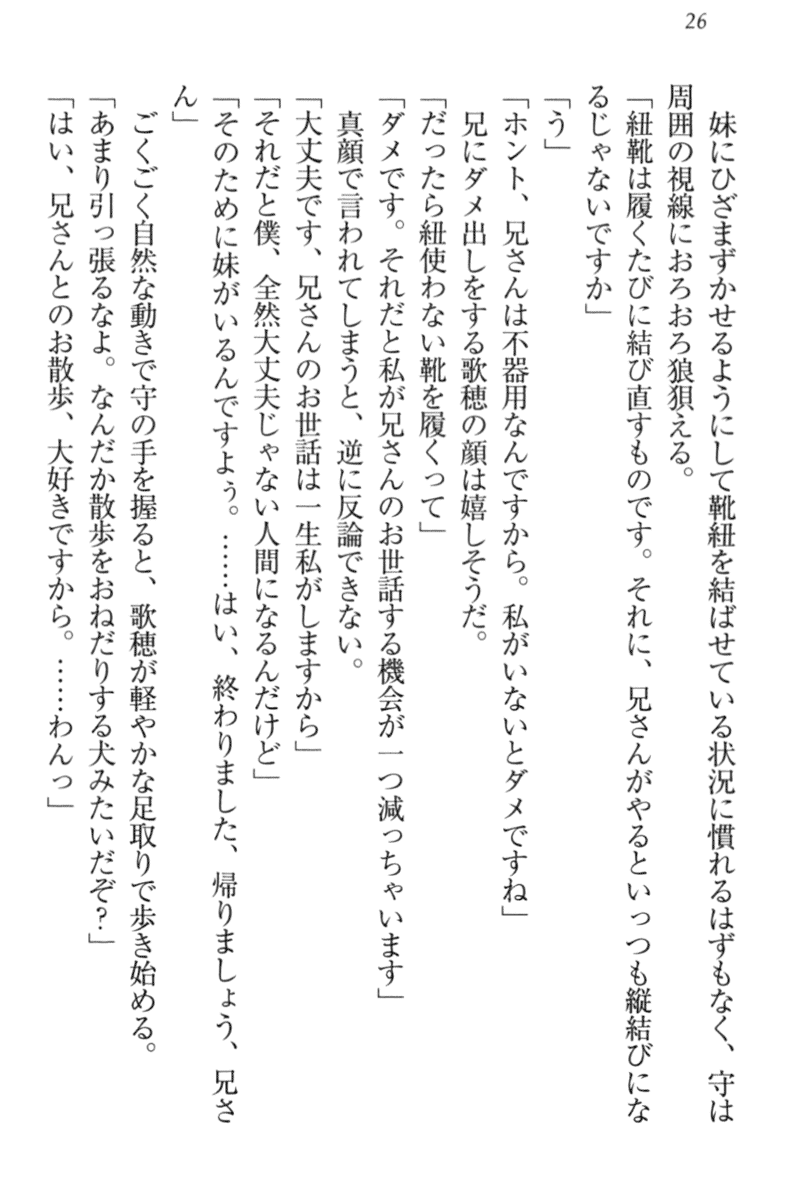 26
妹にひざまずかせるようにして靴紐を結ばせている状況に慣れるはずもなく、守は
周囲の視線におろおろ狼狽える。
「紐靴は履くたびに結び直すものです。それに、兄さんがやるといっつも縦結びにな
るじゃないですか」
「う」
「ホント、兄さんは不器用なんですから。私がいないとダメですね」
兄にダメ出しをする歌穂の顔は嬉しそうだ。
「だったら紐使わない靴を履くって」
「ダメです。それだと私が兄さんのお世話する機会が一つ減っちゃいます」
真顔で言われてしまうと、逆に反論できない。
「大丈夫です、兄さんのお世話は一生私がしますから」
「それだと僕、全然大丈夫じゃない人間になるんだけど」
「そのために妹がいるんですよぅ。……はい、終わりました、帰りましょう、兄さ
ん」
ごくごく自然な動きで守の手を握ると、歌穂が軽やかな足取りで歩き始める。
「あまり引っ張るなよ。なんだか散歩をおねだりする犬みたいだぞ?」
「はい、兄さんとのお散歩、大好きですから。……わんっ」